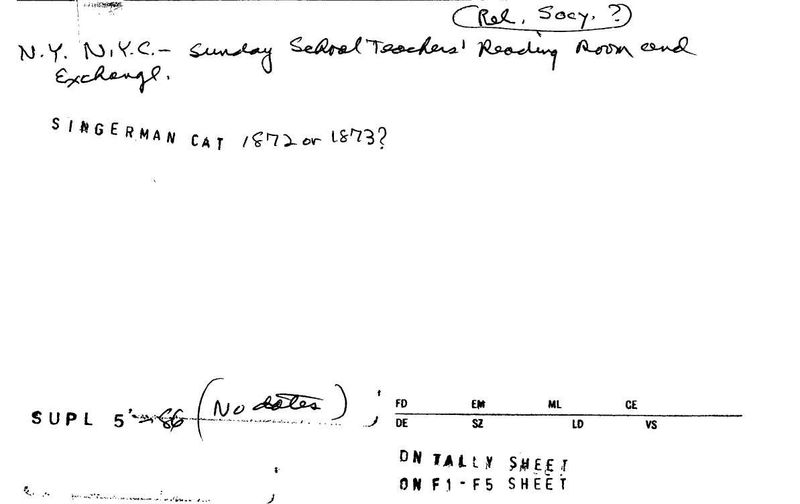 (Rel. Socy. ?)
N.Y. N.Y.C. - Sunday School Teachers' Reading Room and
Exchange.
SINGERMAN CAT 1872 or 1873?
SUPL 5 (No dates)
FD EM ML CE
DE SZ LD VS
ON TALLY SHEET
ON F1-F5 SHEET